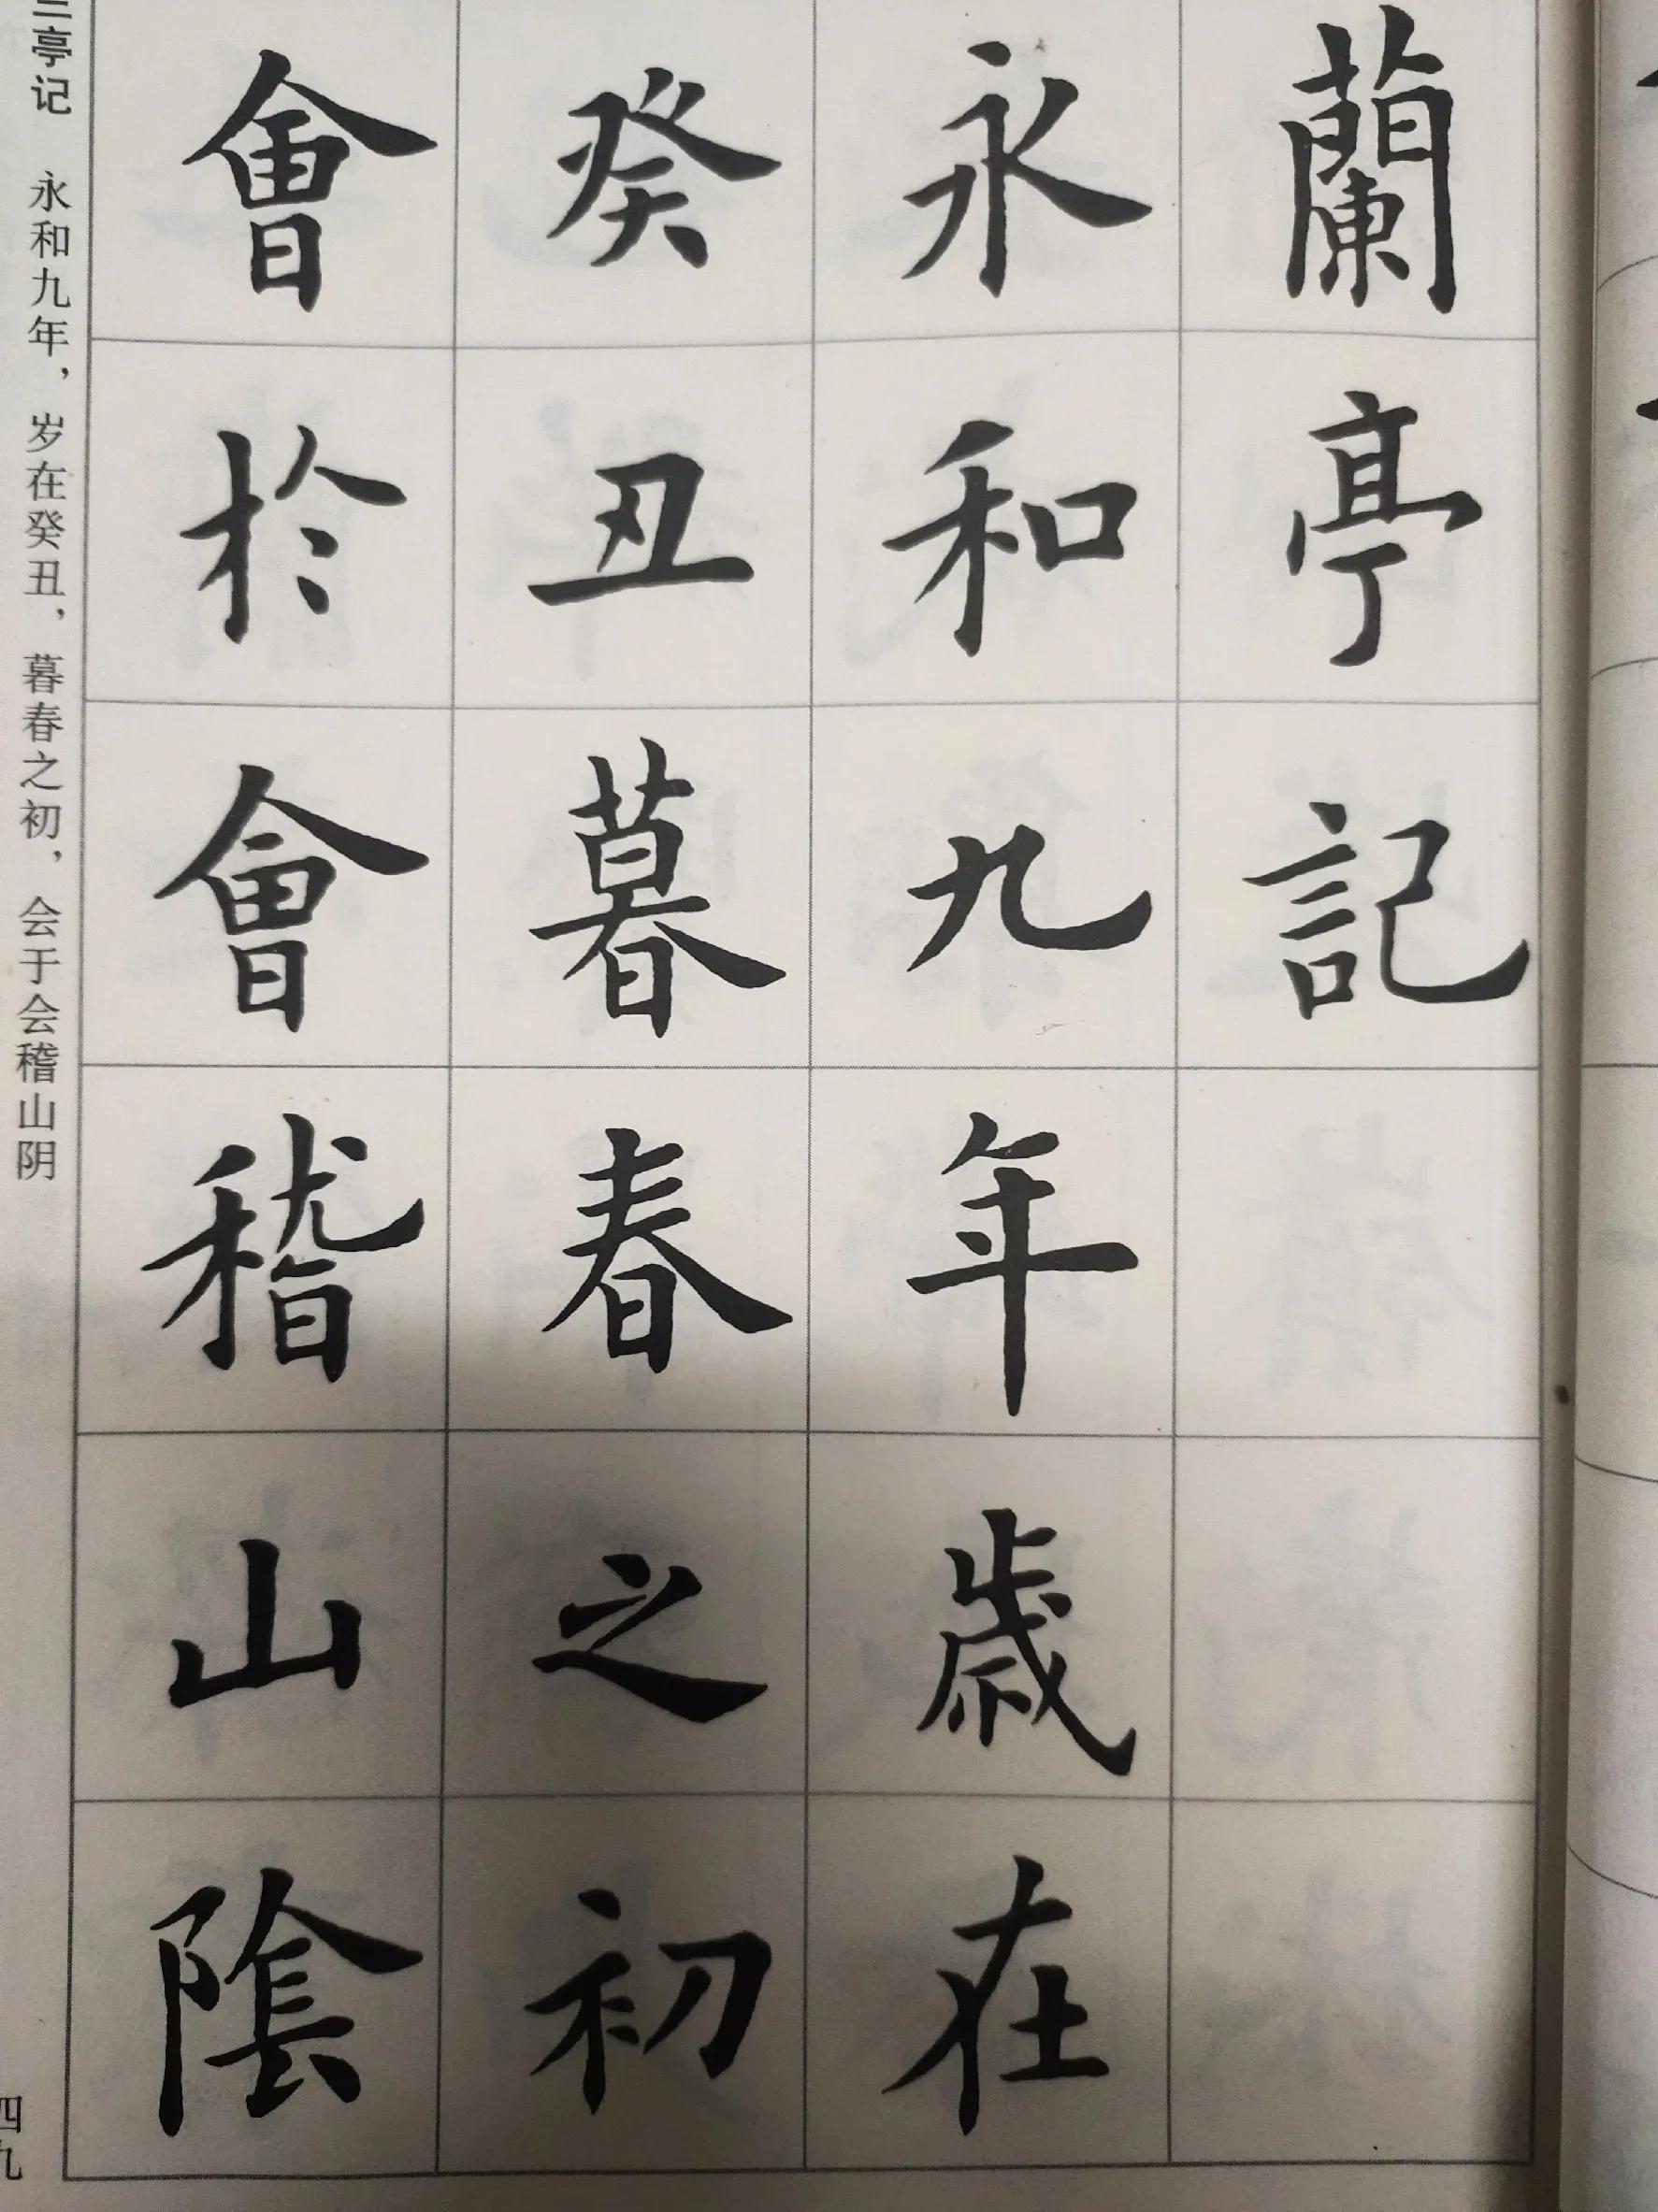 蘭亭記
永和九年歳在
癸丑暮春之初
會於會稽山陰
兰亭记 永和九年，岁在癸丑，暮春之初，会于会稽山阴
四九